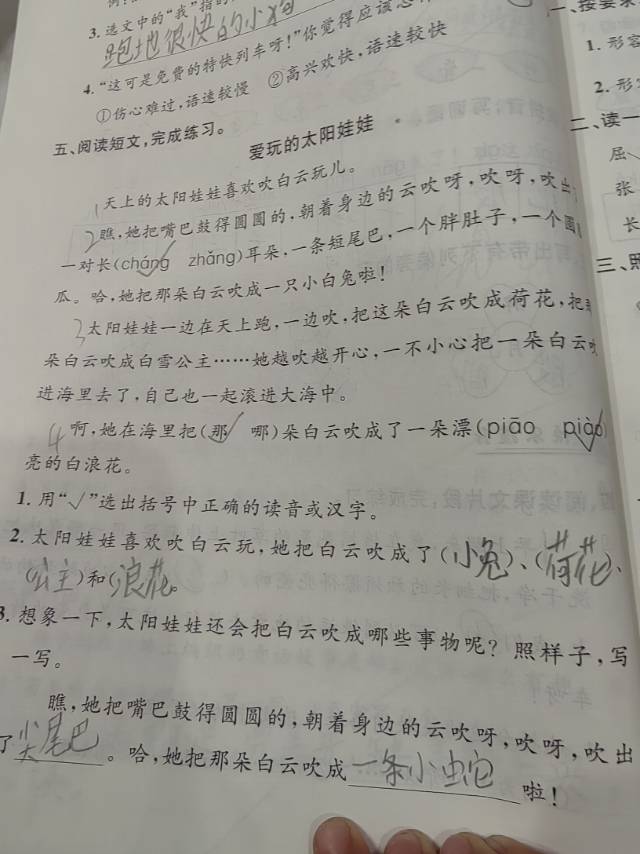 3. 选文中的“我”指的
跑地很快的小狗
4. “这可是免费的特快列车呀!”你觉得应该怎
①伤心难过,语速较慢 ②高兴欢快,语速较快
五、阅读短文,完成练习。
爱玩的太阳娃娃
1天上的太阳娃娃喜欢吹白云玩儿。
2瞧,她把嘴巴鼓得圆圆的,朝着身边的云吹呀,吹呀,吹出
一对长(cháng√ zhǎng)耳朵,一条短尾巴,一个胖肚子,一个圆
瓜。哈,她把那朵白云吹成一只小白兔啦!
3太阳娃娃一边在天上跑,一边吹,把这朵白云吹成荷花,把
朵白云吹成白雪公主……她越吹越开心,一不小心把一朵白云
进海里去了,自己也一起滚进大海中。
4啊,她在海里把(那√ 哪)朵白云吹成了一朵漂(piāo piào√)
亮的白浪花。
1. 用“√”选出括号中正确的读音或汉字。
2. 太阳娃娃喜欢吹白云玩,她把白云吹成了(小兔)、(荷花)、
(公主)和(浪花)。
3. 想象一下,太阳娃娃还会把白云吹成哪些事物呢?照样子,写
一写。
瞧,她把嘴巴鼓得圆圆的,朝着身边的云吹呀,吹呀,吹出
了尖尾巴。哈,她把那朵白云吹成一条小蛇啦!
一、按要求
1. 形容
2. 形
二、读一
屈
张
长
三、照